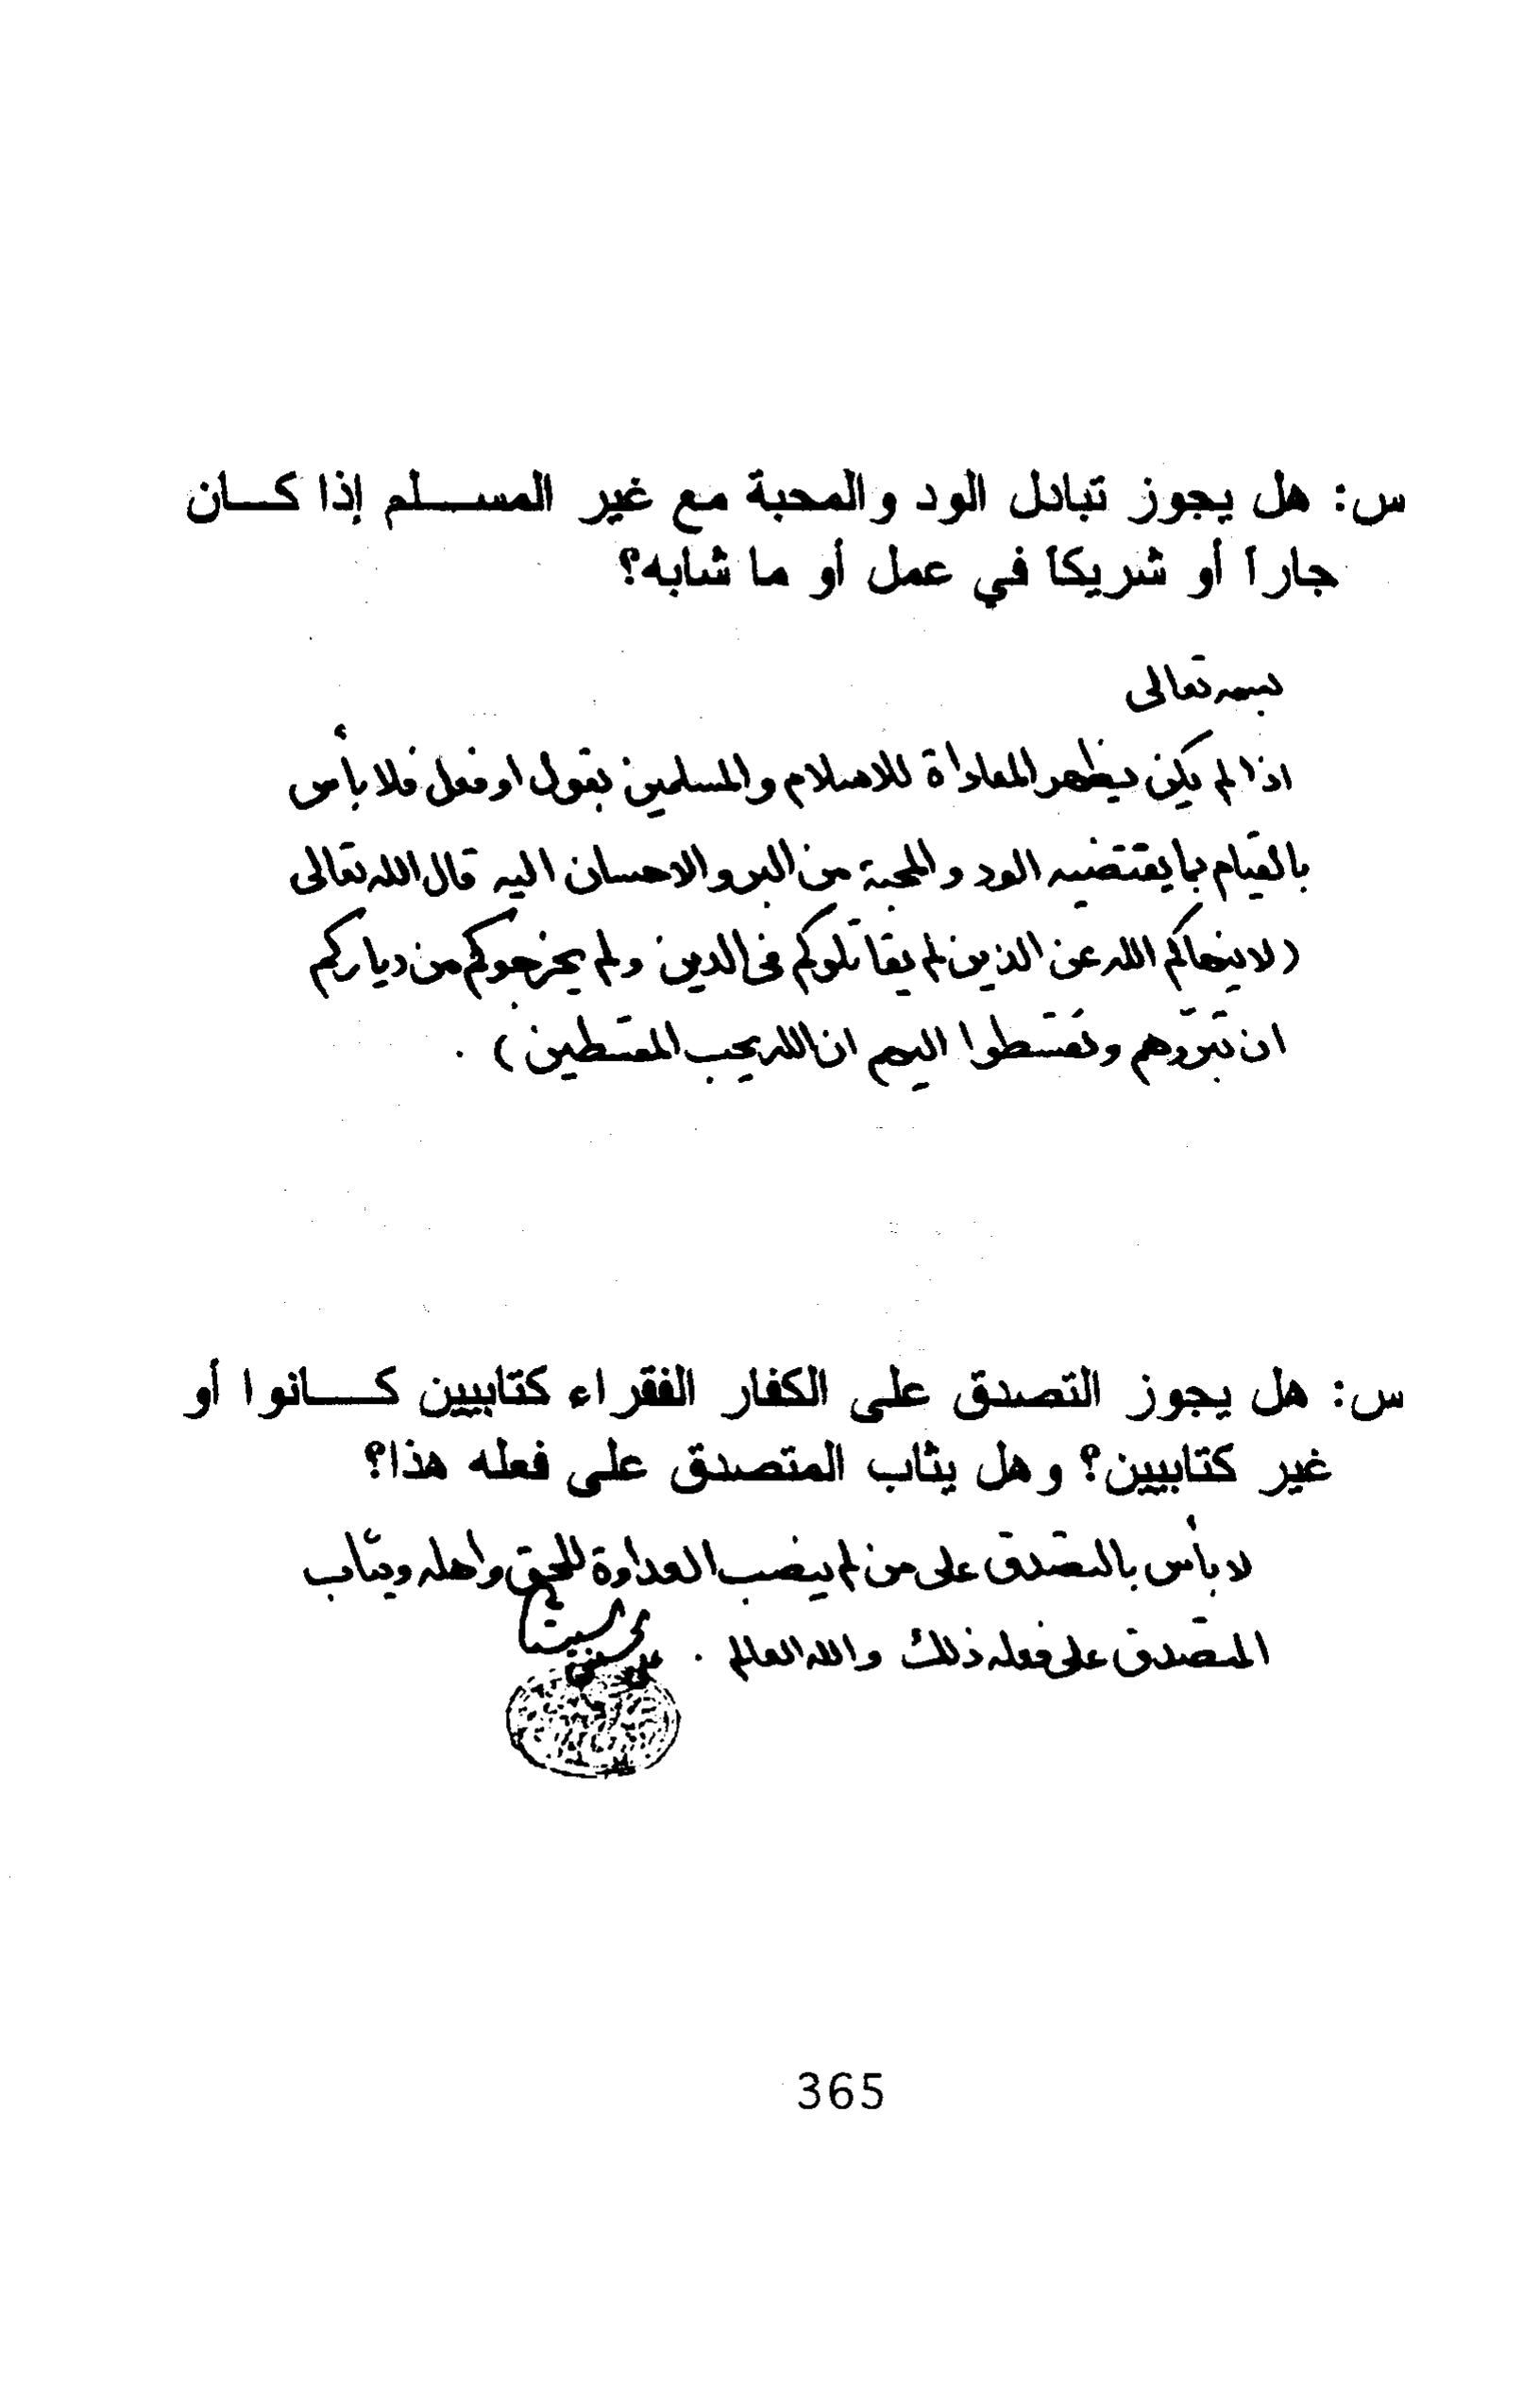 س: هل يجوز تبادل الود والمحبة مع غير المسلم إذا كان
جاراً أو شريكاً في عمل أو ما شابه؟
بسمه تعالى
اذا لم يكن يظهر المعاداة للاسلام والمسلمين بقول او فعل فلا بأس
بالقيام بما يقتضيه الود والمحبة من البر والاحسان اليه قال الله تعالى
(لا ينهاكم الله عن الذين لم يقاتلوكم في الدين ولم يخرجوكم من دياركم
ان تبرّوهم وتقسطوا اليهم ان الله يحب المقسطين) .
س: هل يجوز التصدق على الكفار الفقراء كتابيين كانوا أو
غير كتابيين؟ وهل يثاب المتصدق على فعله هذا؟
لا بأس بالتصدق على من لم ينصب العداوة للحق واهله ويثاب
المتصدق على فعله ذلك والله العالم .
365